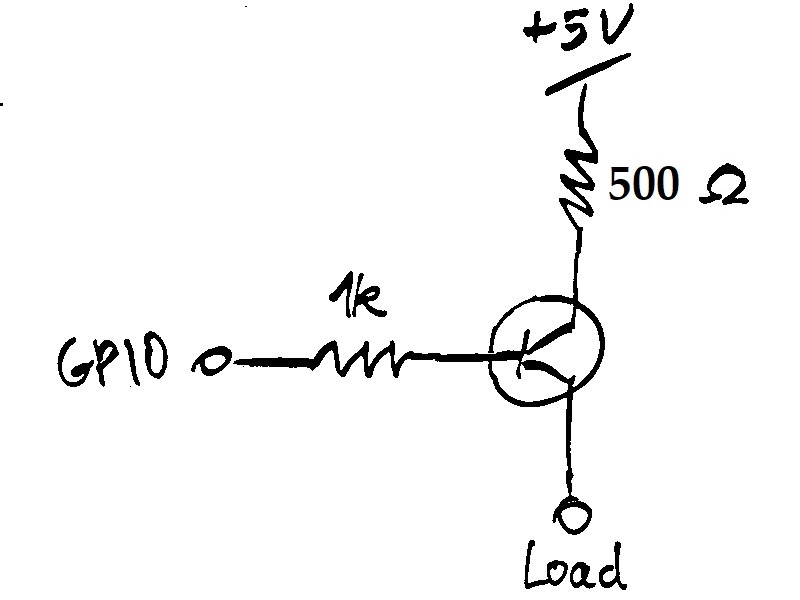 +5V
500 Ω
1k
GPIO
Load